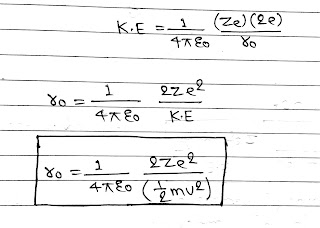 K.E = 1/4πε0 (Ze)(2e)/r0
r0 = 1/4πε0 2Ze²/K.E
r0 = 1/4πε0 2Ze²/(½mv²)